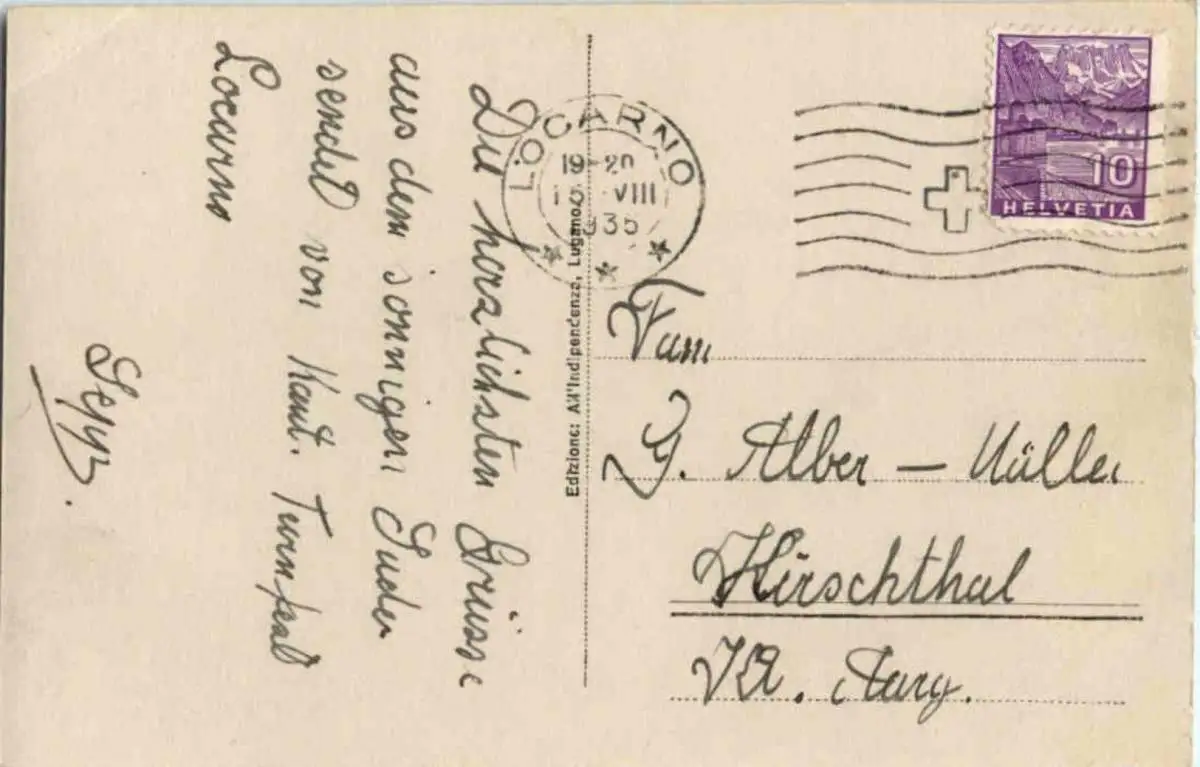 Die herzlichsten Grüsse
aus dem sonnigen Süden
sendet von Kant. Turnfest
Locarno
Sepp.
LOCARNO
19-20
VIII
1935
10
HELVETIA
Edizione: All'Indipendenza, Lugano
Fam
G. Alber – Müller
Hirschthal
Kt. Aarg.